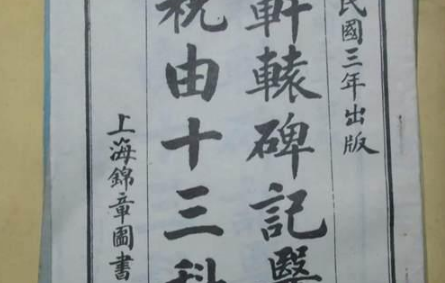 民國三年出版
軒轅碑記醫
祝由十三科
上海錦章圖書